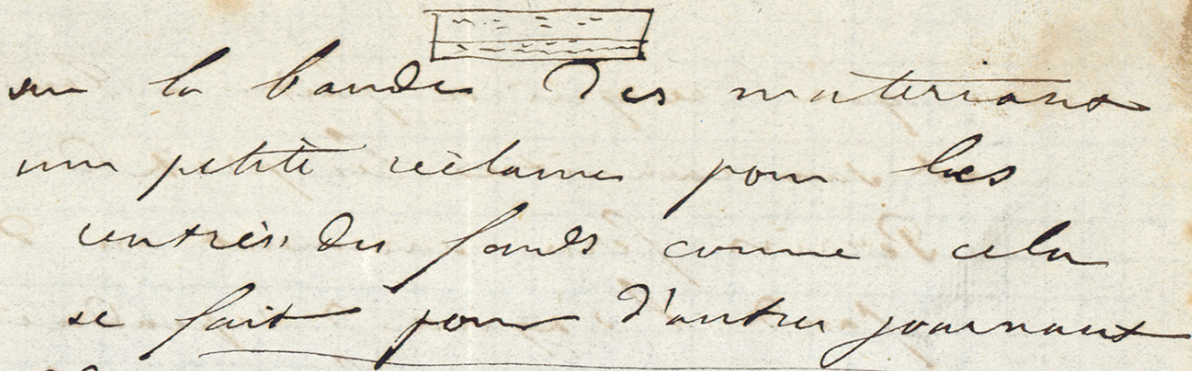 sur la bande des materiaux
une petite réclame pour les
rentrées des fonds comme cela
se fait pour d'autres journaux